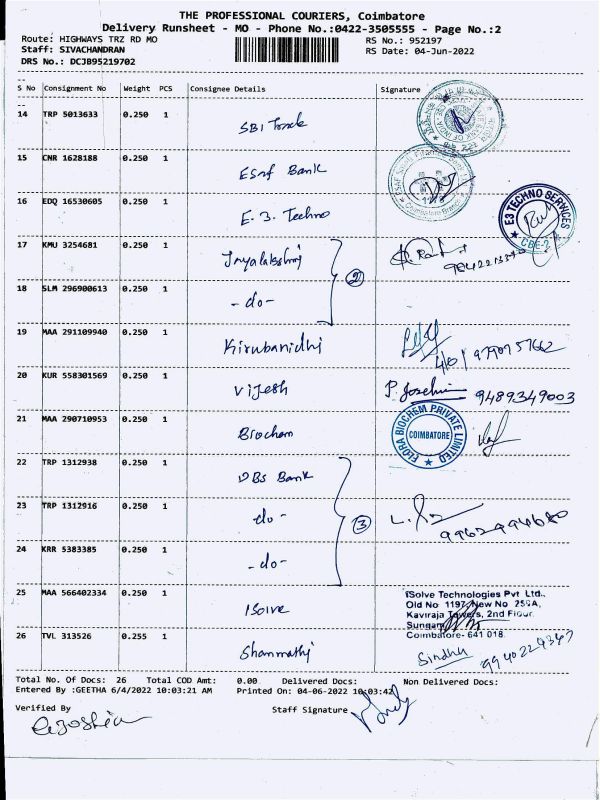 THE PROFESSIONAL COURIERS, Coimbatore
Delivery Runsheet - MO - Phone No.:0422-3505555 - Page No.:2
Route: HIGHWAYS TRZ RD MO RS No.: 952197
Staff: SIVACHANDRAN RS Date: 04-Jun-2022
DRS No.: DCJB95219702
S No Consignment No Weight PCS Consignee Details Signature
14 TRP 5013633 0.250 1 SBI Trade
15 CNR 1628188 0.250 1 ESaf Bank
Coimbatore Branch
16 EDQ 16530605 0.250 1 E. 3. Techno
E3 TECHNO SERVICES
CBE-2
17 KMU 3254681 0.250 1 Jayalakshmi
2
18 SLM 296900613 0.250 1 - do -
19 MAA 291109940 0.250 1 Kirubanidhi
20 KUR 558301569 0.250 1 Vijesh 9489349003
21 MAA 290710953 0.250 1 Biochem
FLORA BIOCHEM PRIVATE LIMITED
COIMBATORE
22 TRP 1312938 0.250 1 DBS Bank
23 TRP 1312916 0.250 1 - do -
3
9962994680
24 KRR 5383385 0.250 1 - do -
25 MAA 566402334 0.250 1 iSolve
iSolve Technologies Pvt Ltd.,
Old No 1197, New No 259A,
Kaviraja Towers, 2nd Floor,
Sungam
Coimbatore- 641 018.
26 TVL 313526 0.255 1 Shanmathi Sindhu 9940229367
Total No. Of Docs: 26 Total COD Amt: 0.00 Delivered Docs: Non Delivered Docs:
Entered By :GEETHA 6/4/2022 10:03:21 AM Printed On: 04-06-2022 10:03:42
Verified By Staff Signature